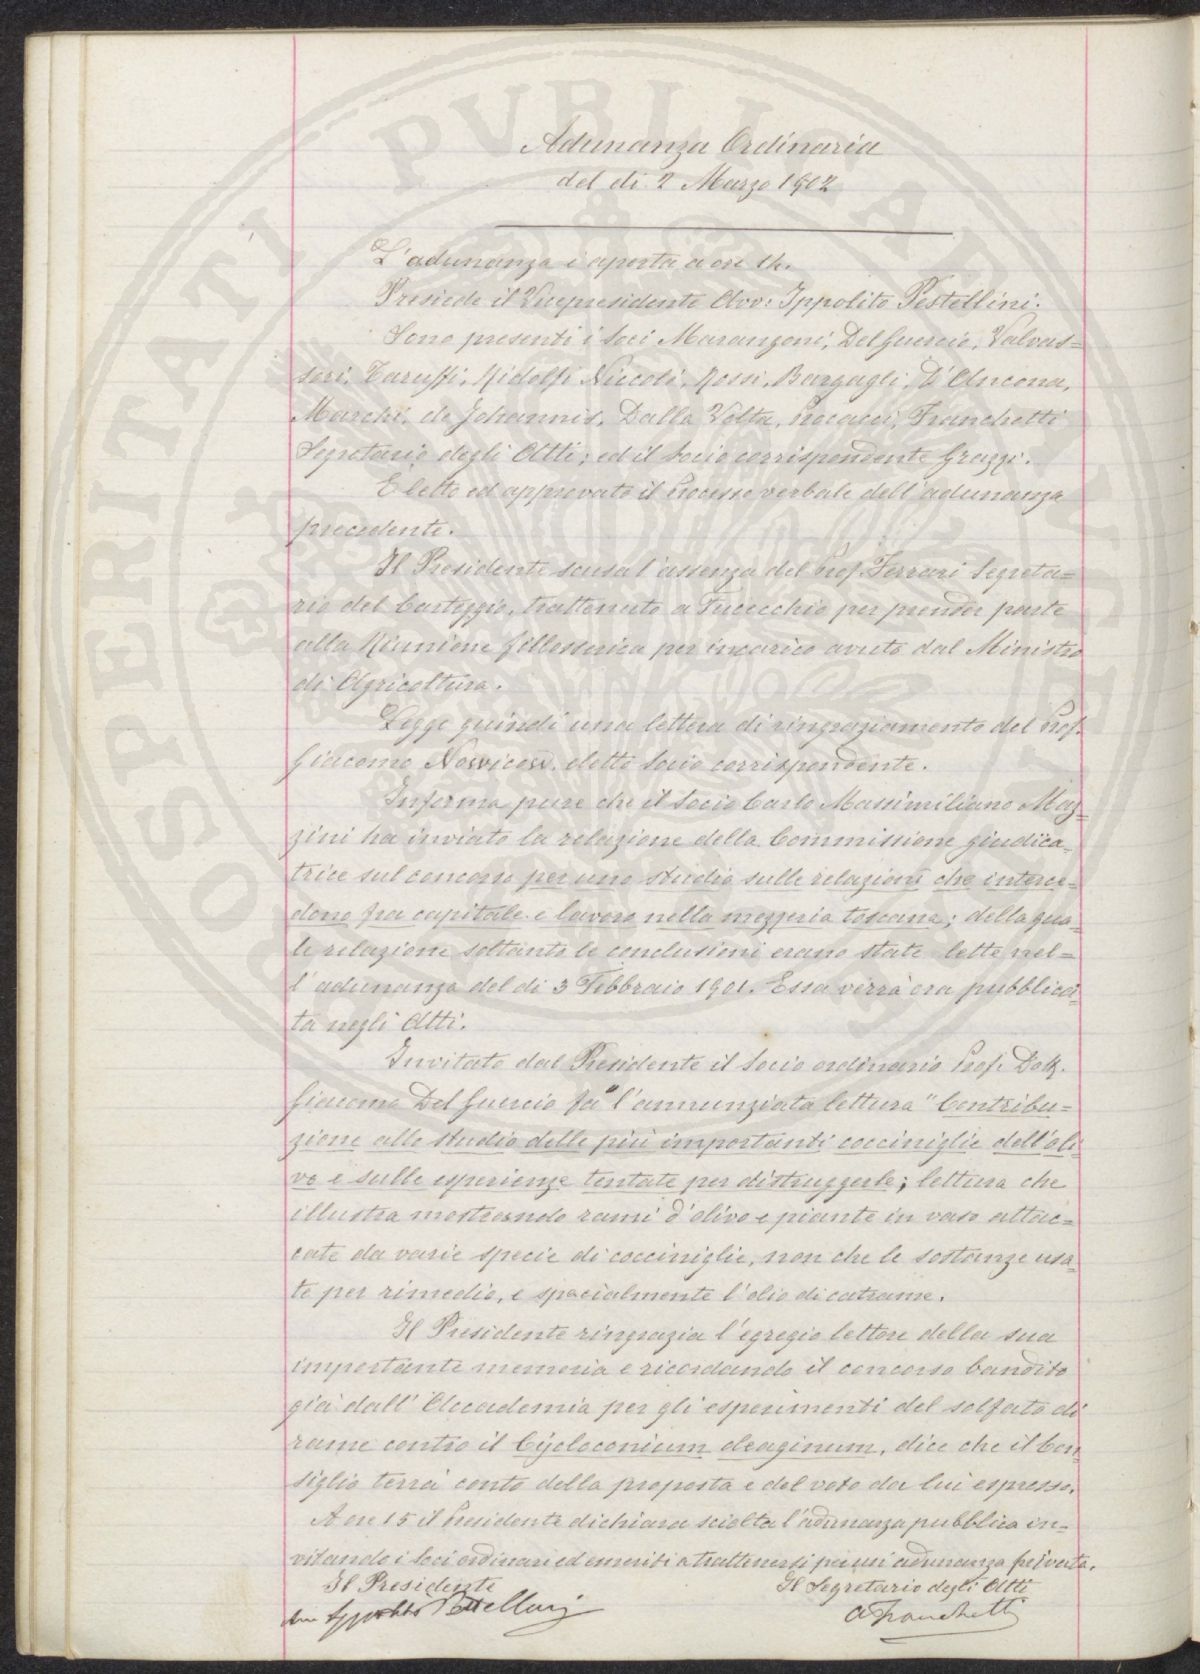 Adunanza Ordinaria
del dì 2 Marzo 1902
L'adunanza è aperta a ore 14.
Presiede il Vicepresidente Avv: Ippolito Pestellini.
Sono presenti i Soci Marangoni, Del Guercio, Valvas=
sori, Taruffi, Ridolfi Niccolò, Rossi, Bargagli, D'Ancona,
Marchi, de Johannis, Dalla Volta, Procacci, Franchetti
Segretario degli Atti; ed il Socio corrispondente Grazzi.
È letto ed approvato il Processo verbale dell'adunanza
precedente.
Il Presidente scusa l'assenza del Prof. Ferrari Segreta=
rio del Carteggio, trattenuto a Fucecchio per prender parte
alla Riunione fillosserica per incarico avuto dal Ministro
di Agricoltura.
Legge quindi una lettera di ringraziamento del Prof.
Giacomo eletto Socio corrispondente.
Informa pure che il Socio Carlo Massimiliano Maz=
zini ha inviato la relazione della Commissione giudica=
trice sul concorso per uno studio sulle relazioni che interce=
dono fra capitale e lavoro nella mezzeria toscana; della qua=
le relazione soltanto le conclusioni erano state lette nel=
l'adunanza del dì 3 Febbraio 1901. Essa verrà ora pubblica=
ta negli Atti.
Invitato dal Presidente il Socio ordinario Prof. Dott.
Giacomo Del Guercio fa l'annunziata lettura "Contribu=
zione allo studio delle più importanti cocciniglie dell'oli=
vo e sulle esperienze tentate per distruggerle; lettura che
illustra mostrando rami d'olivo e piante in vaso attac=
cate da varie specie di cocciniglie, non che le sostanze usa=
te per rimedio, e specialmente l'olio di catrame.
Il Presidente ringrazia l'egregio lettore della sua
importante memoria e ricordando il concorso bandito
già dall'Accademia per gli esperimenti del solfato di
rame contro il Cycloconium oleaginum, dice che il Con=
siglio terrà conto della proposta e del voto da lui espresso.
A ore 15 il Presidente dichiara sciolta l'adunanza pubblica in=
vitando i Soci ordinari ed emeriti a trattenersi per un'adunanza privata.
Il Presidente
Il Segretario degli Atti
Avv Ippolito Pestellini
A Franchetti
PROSPERITATI PVBLICAE AVGENDAE